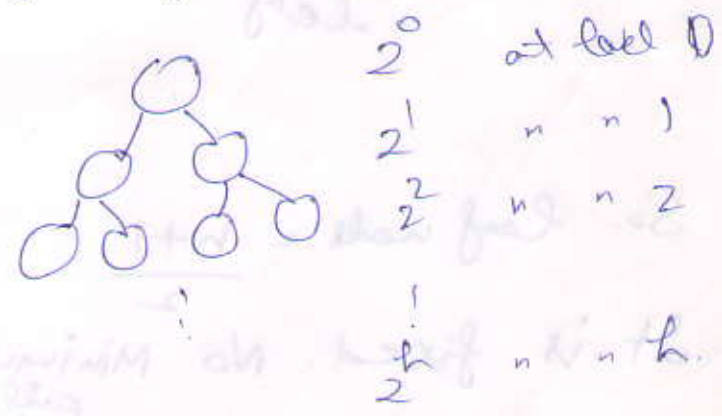 2⁰ at level 0
2¹ " " 1
2² " " 2
2ʰ " " h.